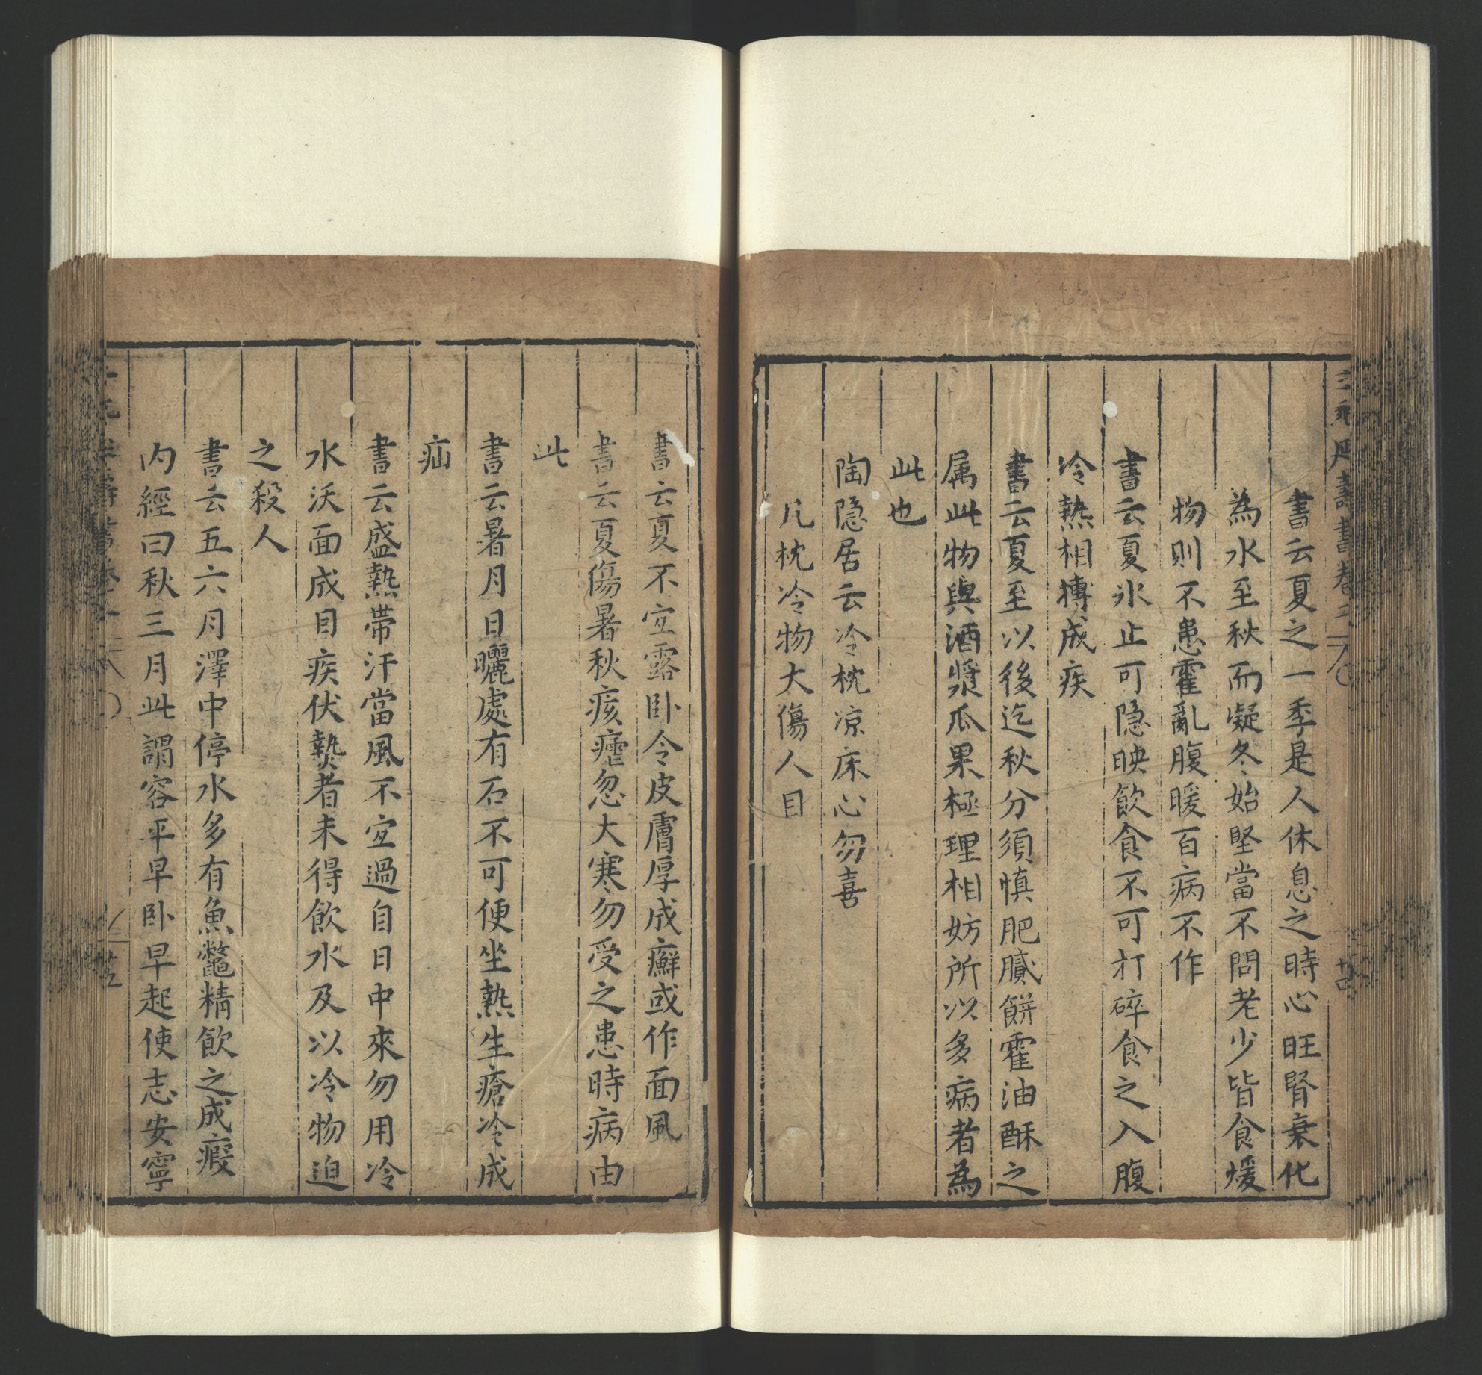 書云夏之一季是人休息之時心旺腎衰化
為水至秋而凝冬始堅當不問老少皆食煖
物則不患霍亂腹暖百病不作
書云夏氷止可隐映飲食不可打碎食之入腹
冷熱相搏成疾
書云夏至以後迄秋分須慎肥膩餅霍油酥之
属此物與酒漿瓜果極理相妨所以多病者為
此也
陶隐居云冷枕凉床心勿喜
凡枕冷物大傷人目
書云夏不宜露卧令皮膚厚成癬或作面風
書云夏傷暑秋痎瘧忽大寒勿受之患時病由
此
書云暑月日曬處有石不可便坐熱生瘡冷成
疝
書云盛熱带汗當風不宜過自日中來勿用冷
水沃面成目疾伏熱者未得飲水及以冷物迫
之殺人
書云五六月澤中停水多有魚鼈精飲之成瘕
内經曰秋三月此謂容平早卧早起使志安寧